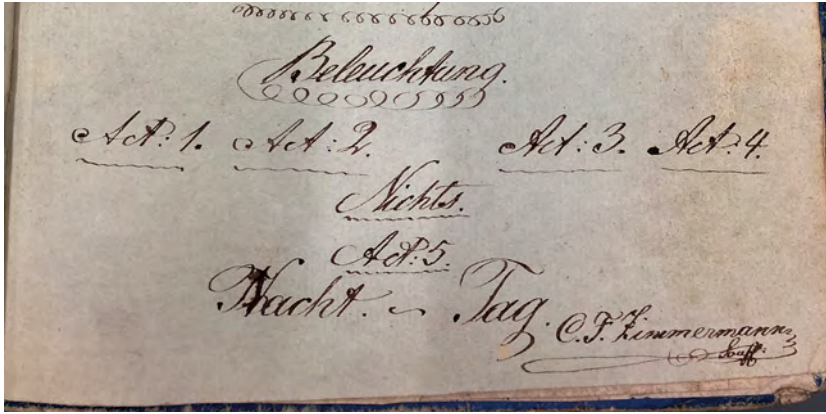 Beleuchtung.
Act: 1. Act: 2. Act: 3. Act: 4.
Nichts.
Act: 5.
Nacht. ~ Tag.
C. F. Zimmermann